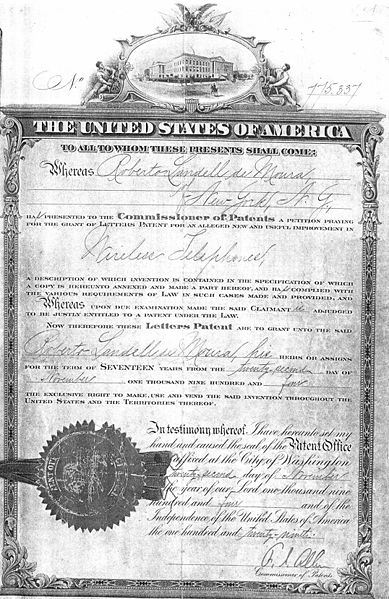 No 775,337
THE UNITED STATES OF AMERICA
TO ALL TO WHOM THESE PRESENTS SHALL COME:
Whereas Roberto Landell de Moura,
of New York, N. Y.,
HAS PRESENTED TO THE Commissioner of Patents A PETITION PRAYING
FOR THE GRANT OF LETTERS PATENT FOR AN ALLEGED NEW AND USEFUL IMPROVEMENT IN
Wireless Telephones,
A DESCRIPTION OF WHICH INVENTION IS CONTAINED IN THE SPECIFICATION OF WHICH
A COPY IS HEREUNTO ANNEXED AND MADE A PART HEREOF, AND HAS COMPLIED WITH
THE VARIOUS REQUIREMENTS OF LAW IN SUCH CASES MADE AND PROVIDED, AND
Whereas UPON DUE EXAMINATION MADE THE SAID CLAIMANT is ADJUDGED
TO BE JUSTLY ENTITLED TO A PATENT UNDER THE LAW.
NOW THEREFORE THESE Letters Patent ARE TO GRANT UNTO THE SAID
Roberto Landell de Moura, his HEIRS OR ASSIGNS
FOR THE TERM OF SEVENTEEN YEARS FROM THE twenty-second DAY OF
November ONE THOUSAND NINE HUNDRED AND four
THE EXCLUSIVE RIGHT TO MAKE, USE AND VEND THE SAID INVENTION THROUGHOUT THE
UNITED STATES AND THE TERRITORIES THEREOF.
In testimony whereof, I have hereunto set my
hand and caused the seal of the Patent Office
to be affixed at the City of Washington
this twenty-second day of November
in the year of our Lord one thousand nine
hundred and four and of the
Independence of the United States of America
the one hundred and twenty-ninth.
Commissioner of Patents